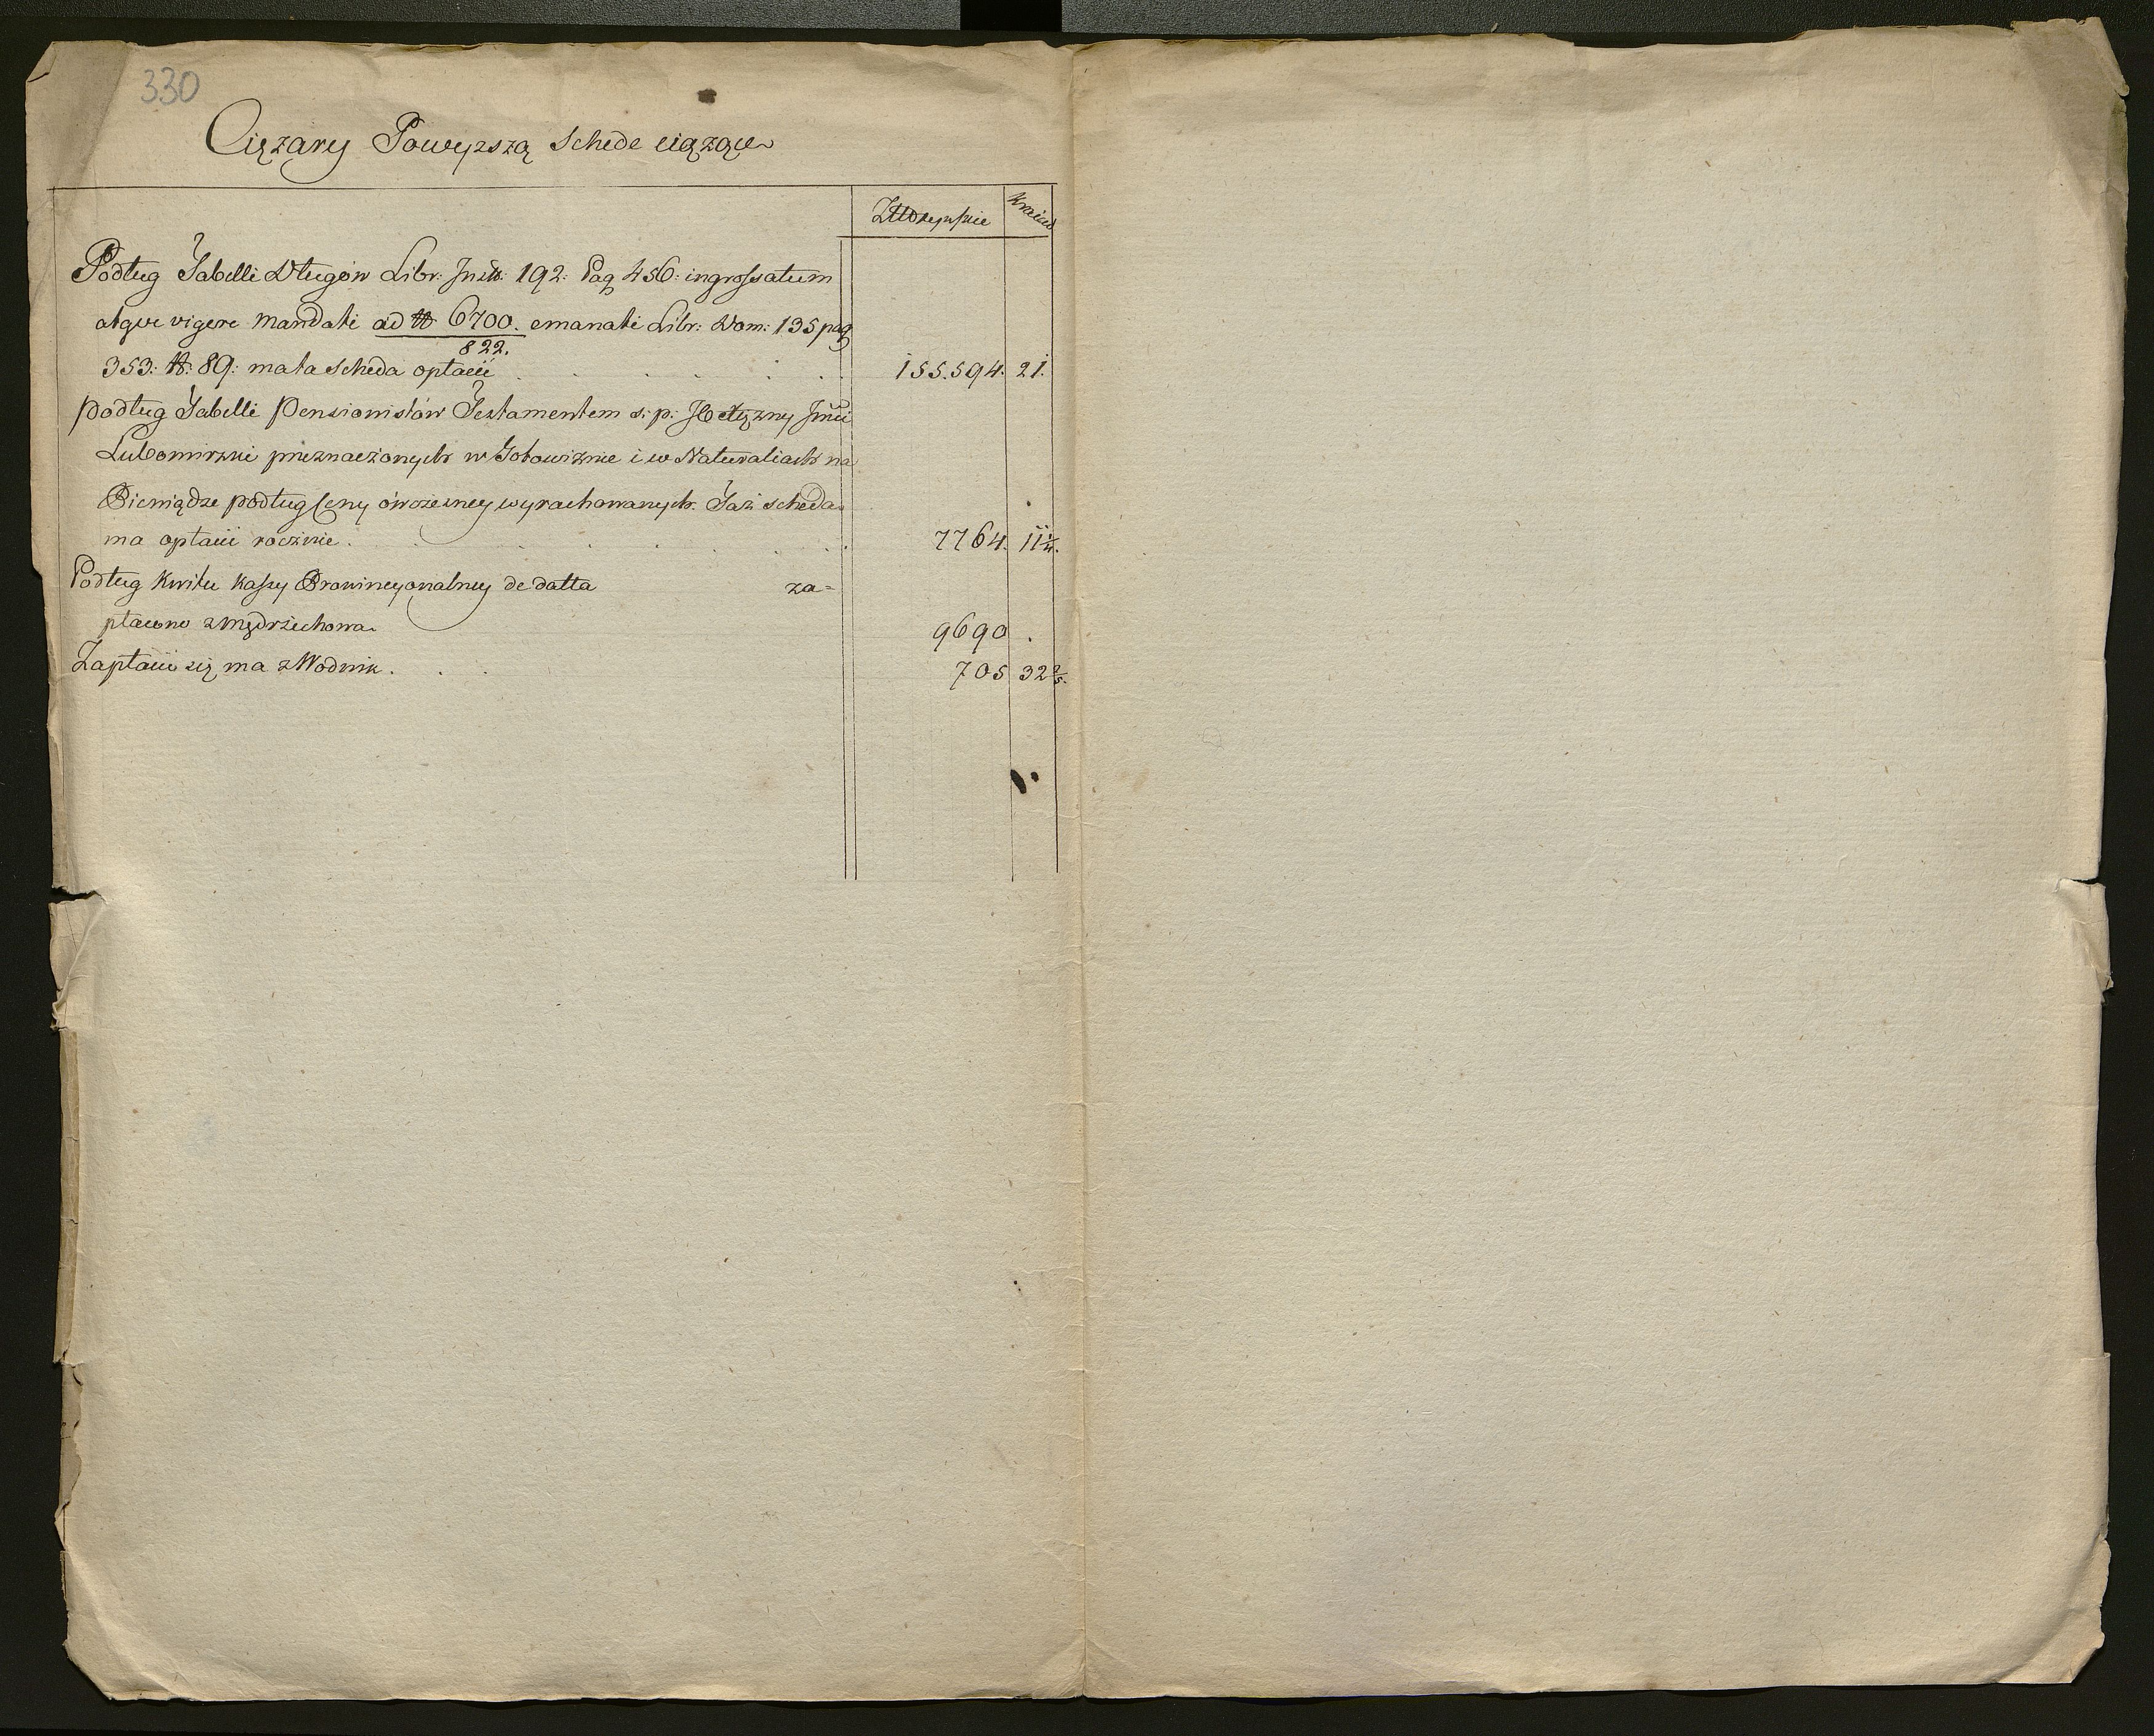 330
Ciężary Powyzszą Schede ciążące
Kraicar
Podług Tabelli Długów Libr: Instr: 192: Pag 456: ingrossatum
atque vigere mandati ad № 6700. emanati Libr: Dom: 135 pag
822.
353: №: 89: ma ta Scheda opłacić 155.594. 21.
podług Tabelli Pensionistów Testamentem s: p:
Lubomirski przeznaczonych w Gotowiznie i w Naturaliach na
Pieniądze podług Ceny owczesney wyrachowanych. Taż scheda
ma opłacić rocznie. 7764. 11 1/4.
Podług Kwitu Kassy Prowincyonalney de datta za=
płacono z Mędrzechowa 9690 .
Zapłacić się ma z Wodnik. 705 32 2/5.